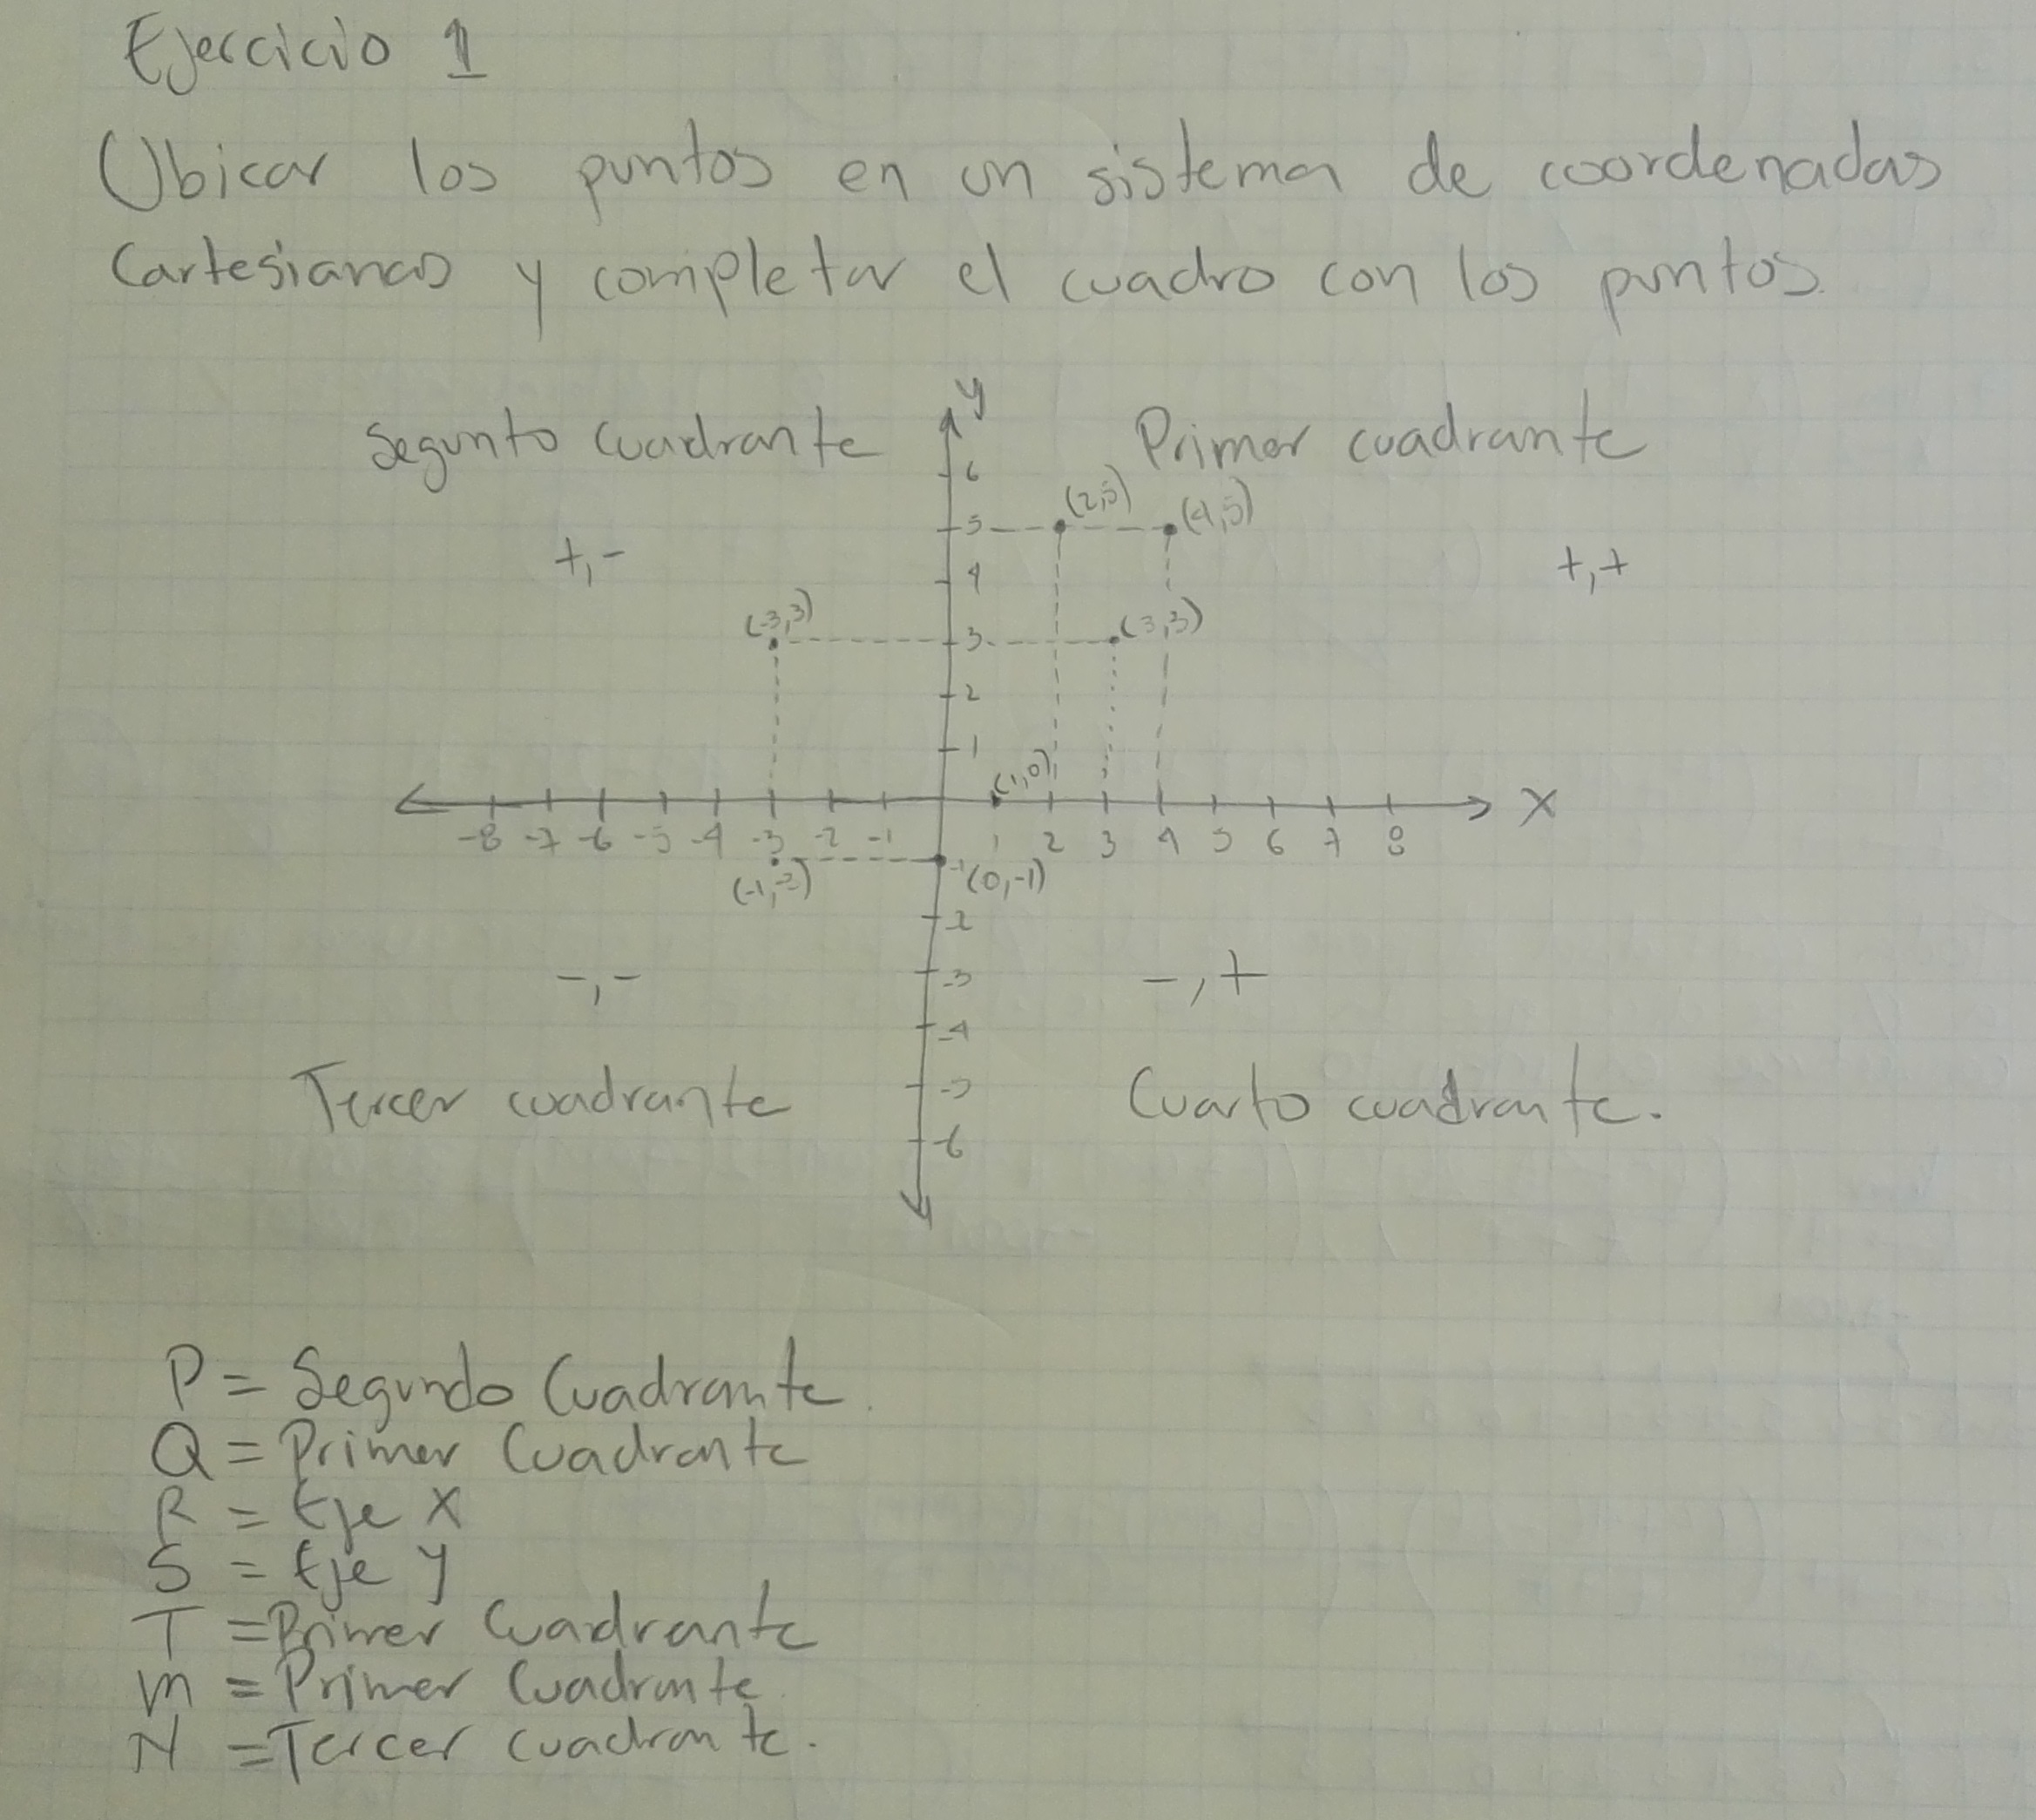 Ejercicio 1
Ubicar los puntos en un sistema de coordenadas
Cartesianas y completar el cuadro con los puntos.
y
Segunto Cuadrante
Primer cuadrante
6
(2,5)
(4,5)
5
+,-
+,+
4
(-3,3)
(3,3)
3
2
1
(1,0)
x
-8 -7 -6 -5 -4 -3 -2 -1 1 2 3 4 5 6 7 8
(-1,-3)
-1 (0,-1)
-2
-3
-,-
-,+
-4
Tercer cuadrante
Cuarto cuadrante.
-5
-6
P = Segundo Cuadrante.
Q = Primer Cuadrante
R = Eje X
S = Eje y
T = Primer Cuadrante
m = Primer Cuadrante
N = Tercer cuadrante.